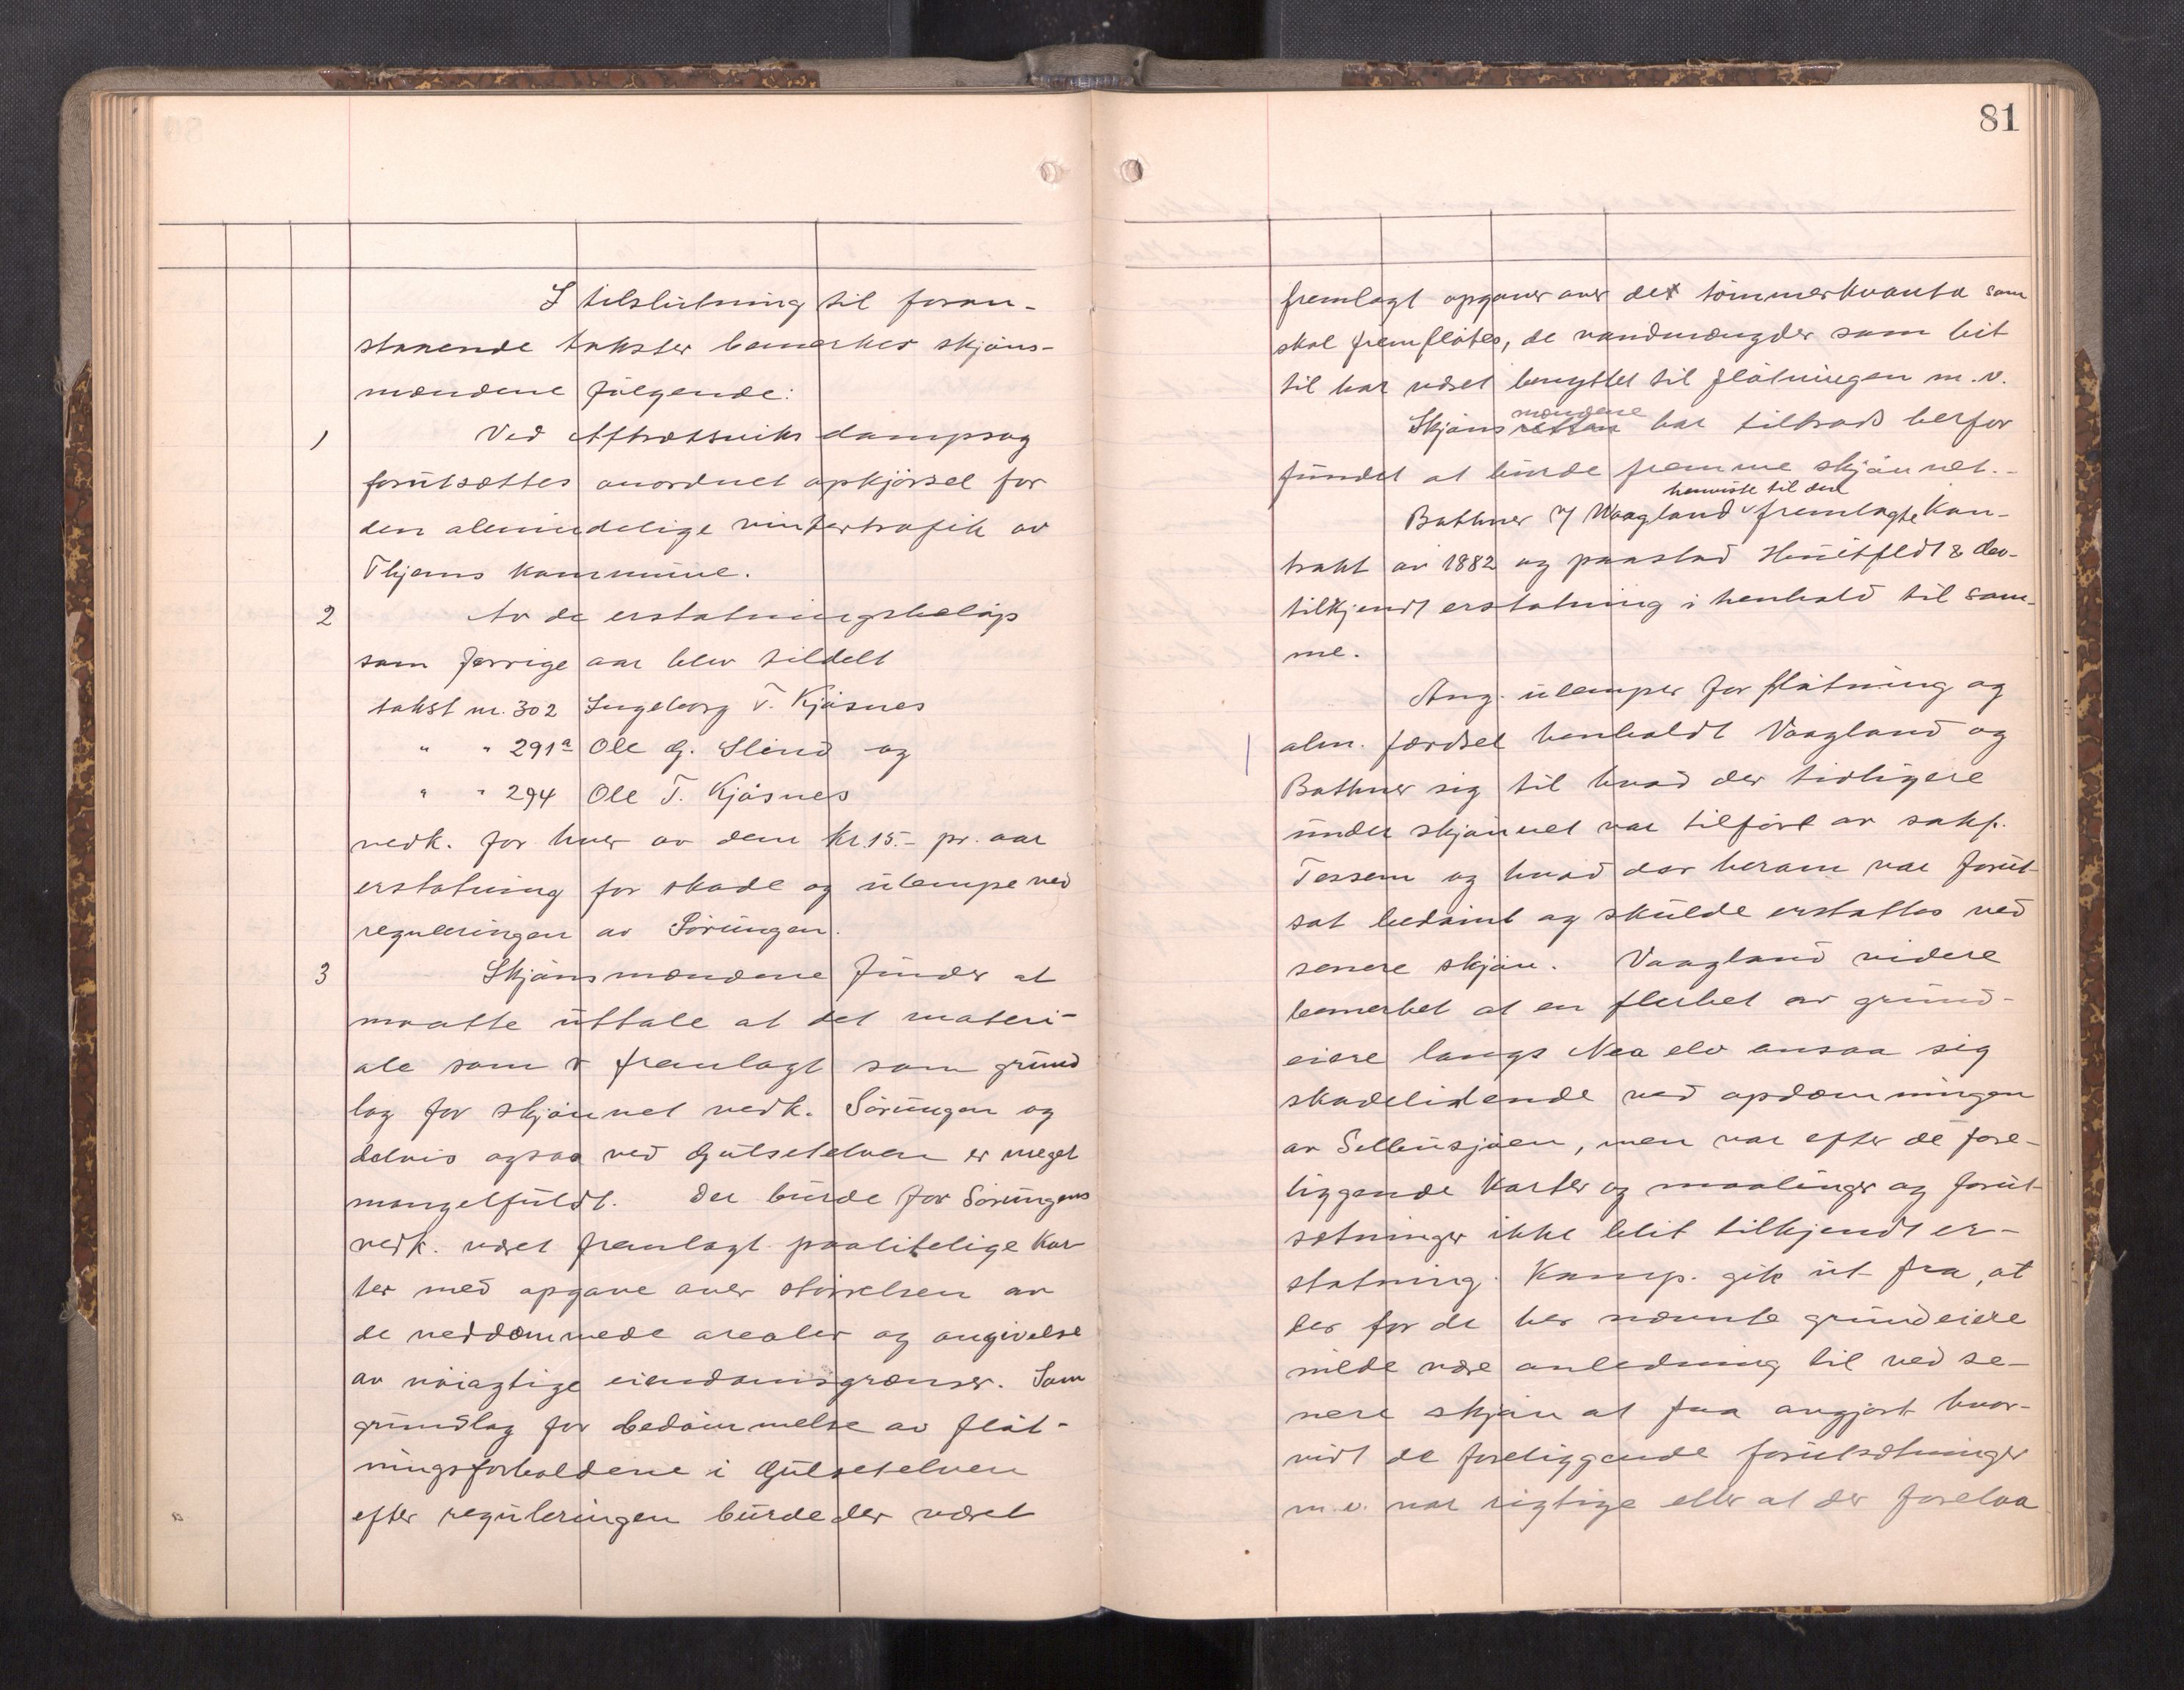 I tilslutning til foran-
staaende takster bemerker skjøns-
mændene følgende:
1 Ved Aftretsviks dampsag
forutsættes anordnet opkjørsel for
den almindelige vintertrafik av
Thjems kommune.
2 Av de erstatningsbeløp
som forrige aar blev tildelt
takst nr. 302 Ingeborg T. Kjøsnes
" " 291a Ole G. Slind og
" " 294 Ole T. Kjøsnes
vedk. for hver av dem kr. 15.- pr. aar
erstatning for skade og ulempe ved
reguleringen av Sørungen.
3 Skjønsmændene finder at
maatte uttale at det materi-
ale som er fremlagt som grund
lag for skjønnet vedk. Sørungen og
delvis ogsaa ved Gulsetelven er meget
mangelfuldt. Der burde for Sørungens
vedk. været fremlagt paalitelige kar
ter med opgave over størrelsen av
de neddæmmede arealer og angivelse
av nøiagtige eiendomsgrænser. Som
grundlag for bedømmelse av fløt-
ningsforholdene i Gulsetelven
efter reguleringen burde der været
81
fremlagt opgaver over det tømmerkvanta som
skal fremfløtes, de vandmængder som hit
til har været benyttet til fløtningen m.v.
Skjønsretten mændene har tiltrods herfor
fundet at burde fremme skjønnet.-
Bathner v/ Waagland henviste til den fremlagte kon-
trakt av 1882 og paastod Huitfeldt & Co
tilkjendt erstatning i henhold til sam-
me.
Ang. ulemper for fløtning og
alm. færdsel henholdt Vaagland og
Bathner sig til hvad der tidligere
under skjønnet var tilført av sakf.
Tessem og hvad der herom var forut-
sat bedømt og skulde erstattes ved
senere skjøn. Vaagland videre
bemerket at en flerhet av grund-
eiere langs Nea elv ansaa sig
skadelidende ved opdæmningen
av Selbusjøen, men var efter de fore-
liggende karter og maalinger og forut-
sætninger ikke blit tilkjendt er-
statning. Komp. gik ut fra, at
der for de her nævnte grundeiere
vilde være anledning til ved se-
nere skjøn at faa avgjort hvor-
vidt de foreliggende forutsætninger
m.v. var rigtige eller at der forelaa